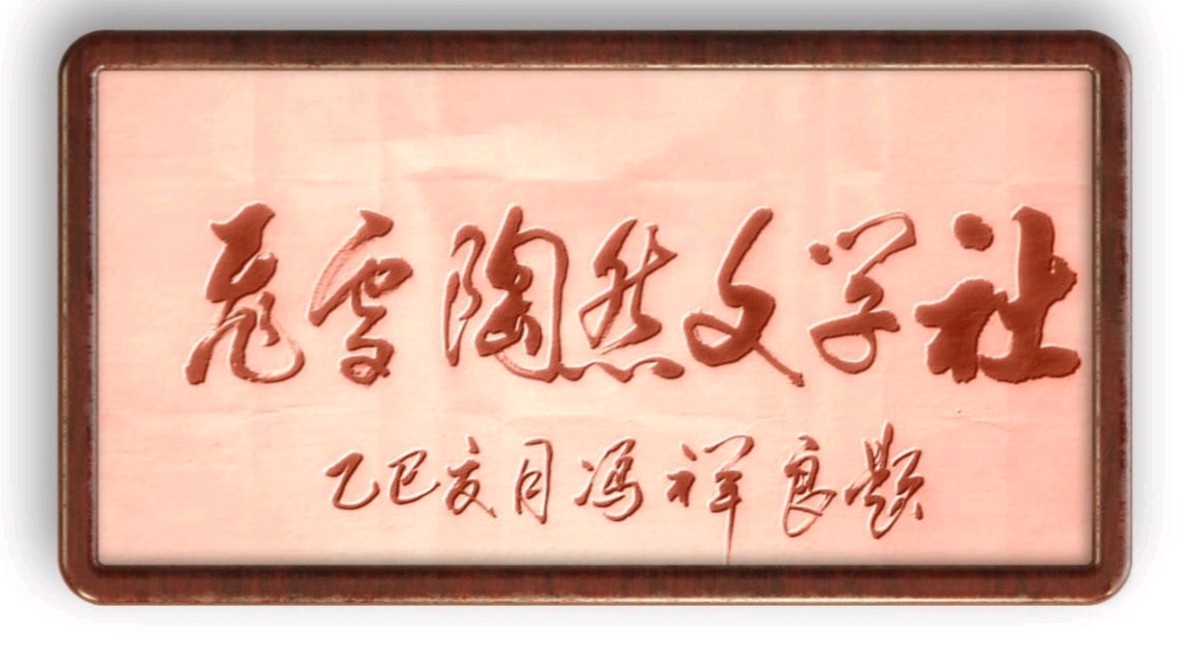 飞雪陶然文学社
乙巳亥月冯祥良题